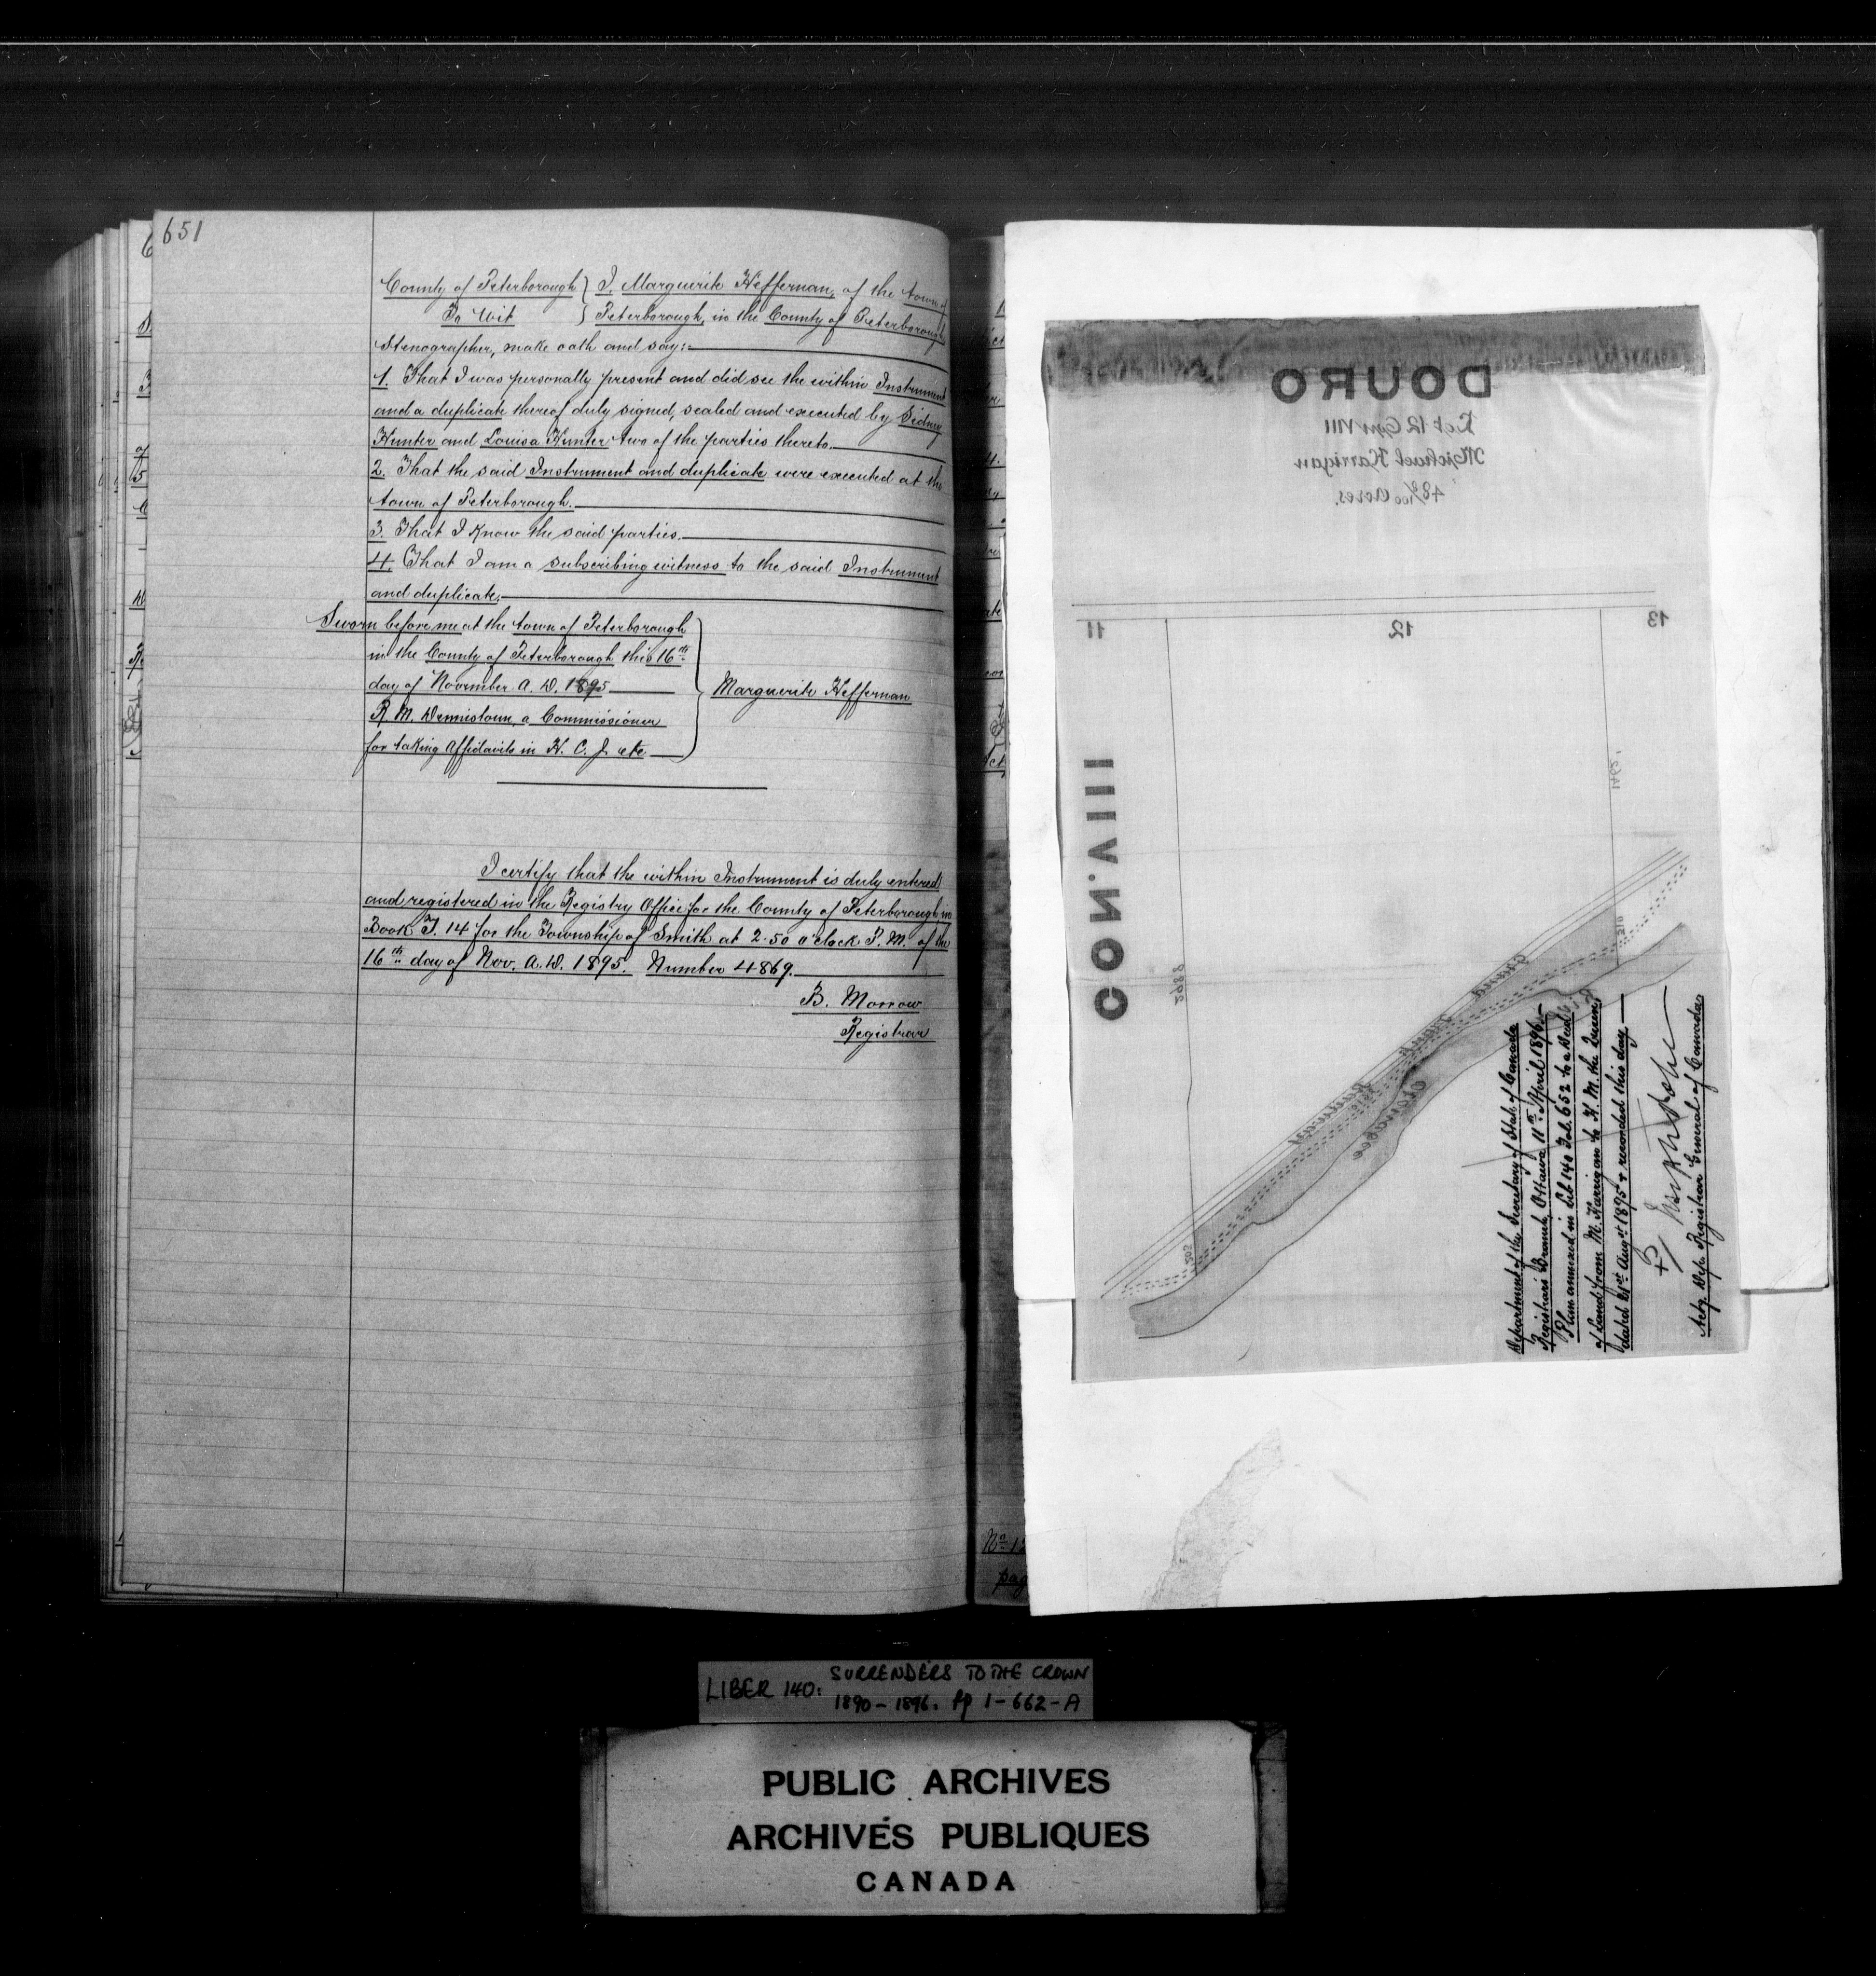 651
County of Peterborough } I, Marguerite Heffernan, of the town of
To Wit } Peterborough, in the County of Peterborough
Stenographer, make oath and say:-
1. That I was personally present and did see the within Instrument
and a duplicate thereof duly signed, sealed and executed by Sidney
Hunter and Louisa Hunter two of the parties thereto.
2. That the said Instrument and duplicate were executed at the
town of Peterborough.
3. That I know the said parties.
4. That I am a subscribing witness to the said Instrument
and duplicate.
Sworn before me at the town of Peterborough
in the County of Peterborough this 16th
day of November A. D. 1895
R. M. Dennistoun, a Commissioner
for taking affidavits in H. C. J. etc
Marguerite Heffernan
I certify that the within Instrument is duly entered
and registered in the Registry Office for the County of Peterborough, in
Book T. 14 for the Township of Smith at 2.50 o'clock P. M. of the
16th day of Nov. A. D. 1895. Number 4869.
B. Morrow
Registrar
DOURO
Lot 12 Con VIII
Michael Harrigan
acres.
11
12
13
CON. VIII
1462
2988
210
502
Grand
Trunk
Railway
Otonabee
Department of the Secretary of State of Canada
Registrar's Branch, Ottawa 11th April 1896.
Plan annexed in Lib 140 Fol. 652 to a Deed
of Land from M. Harrigan to H. M. the Queen,
dated 21st Aug 1895 & recorded this day
Actg. Dep. Registrar General of Canada
No 12
pag
LIBER 140: SURRENDERS TO THE CROWN
1890-1896. pp 1-662-A
PUBLIC ARCHIVES
ARCHIVES PUBLIQUES
CANADA